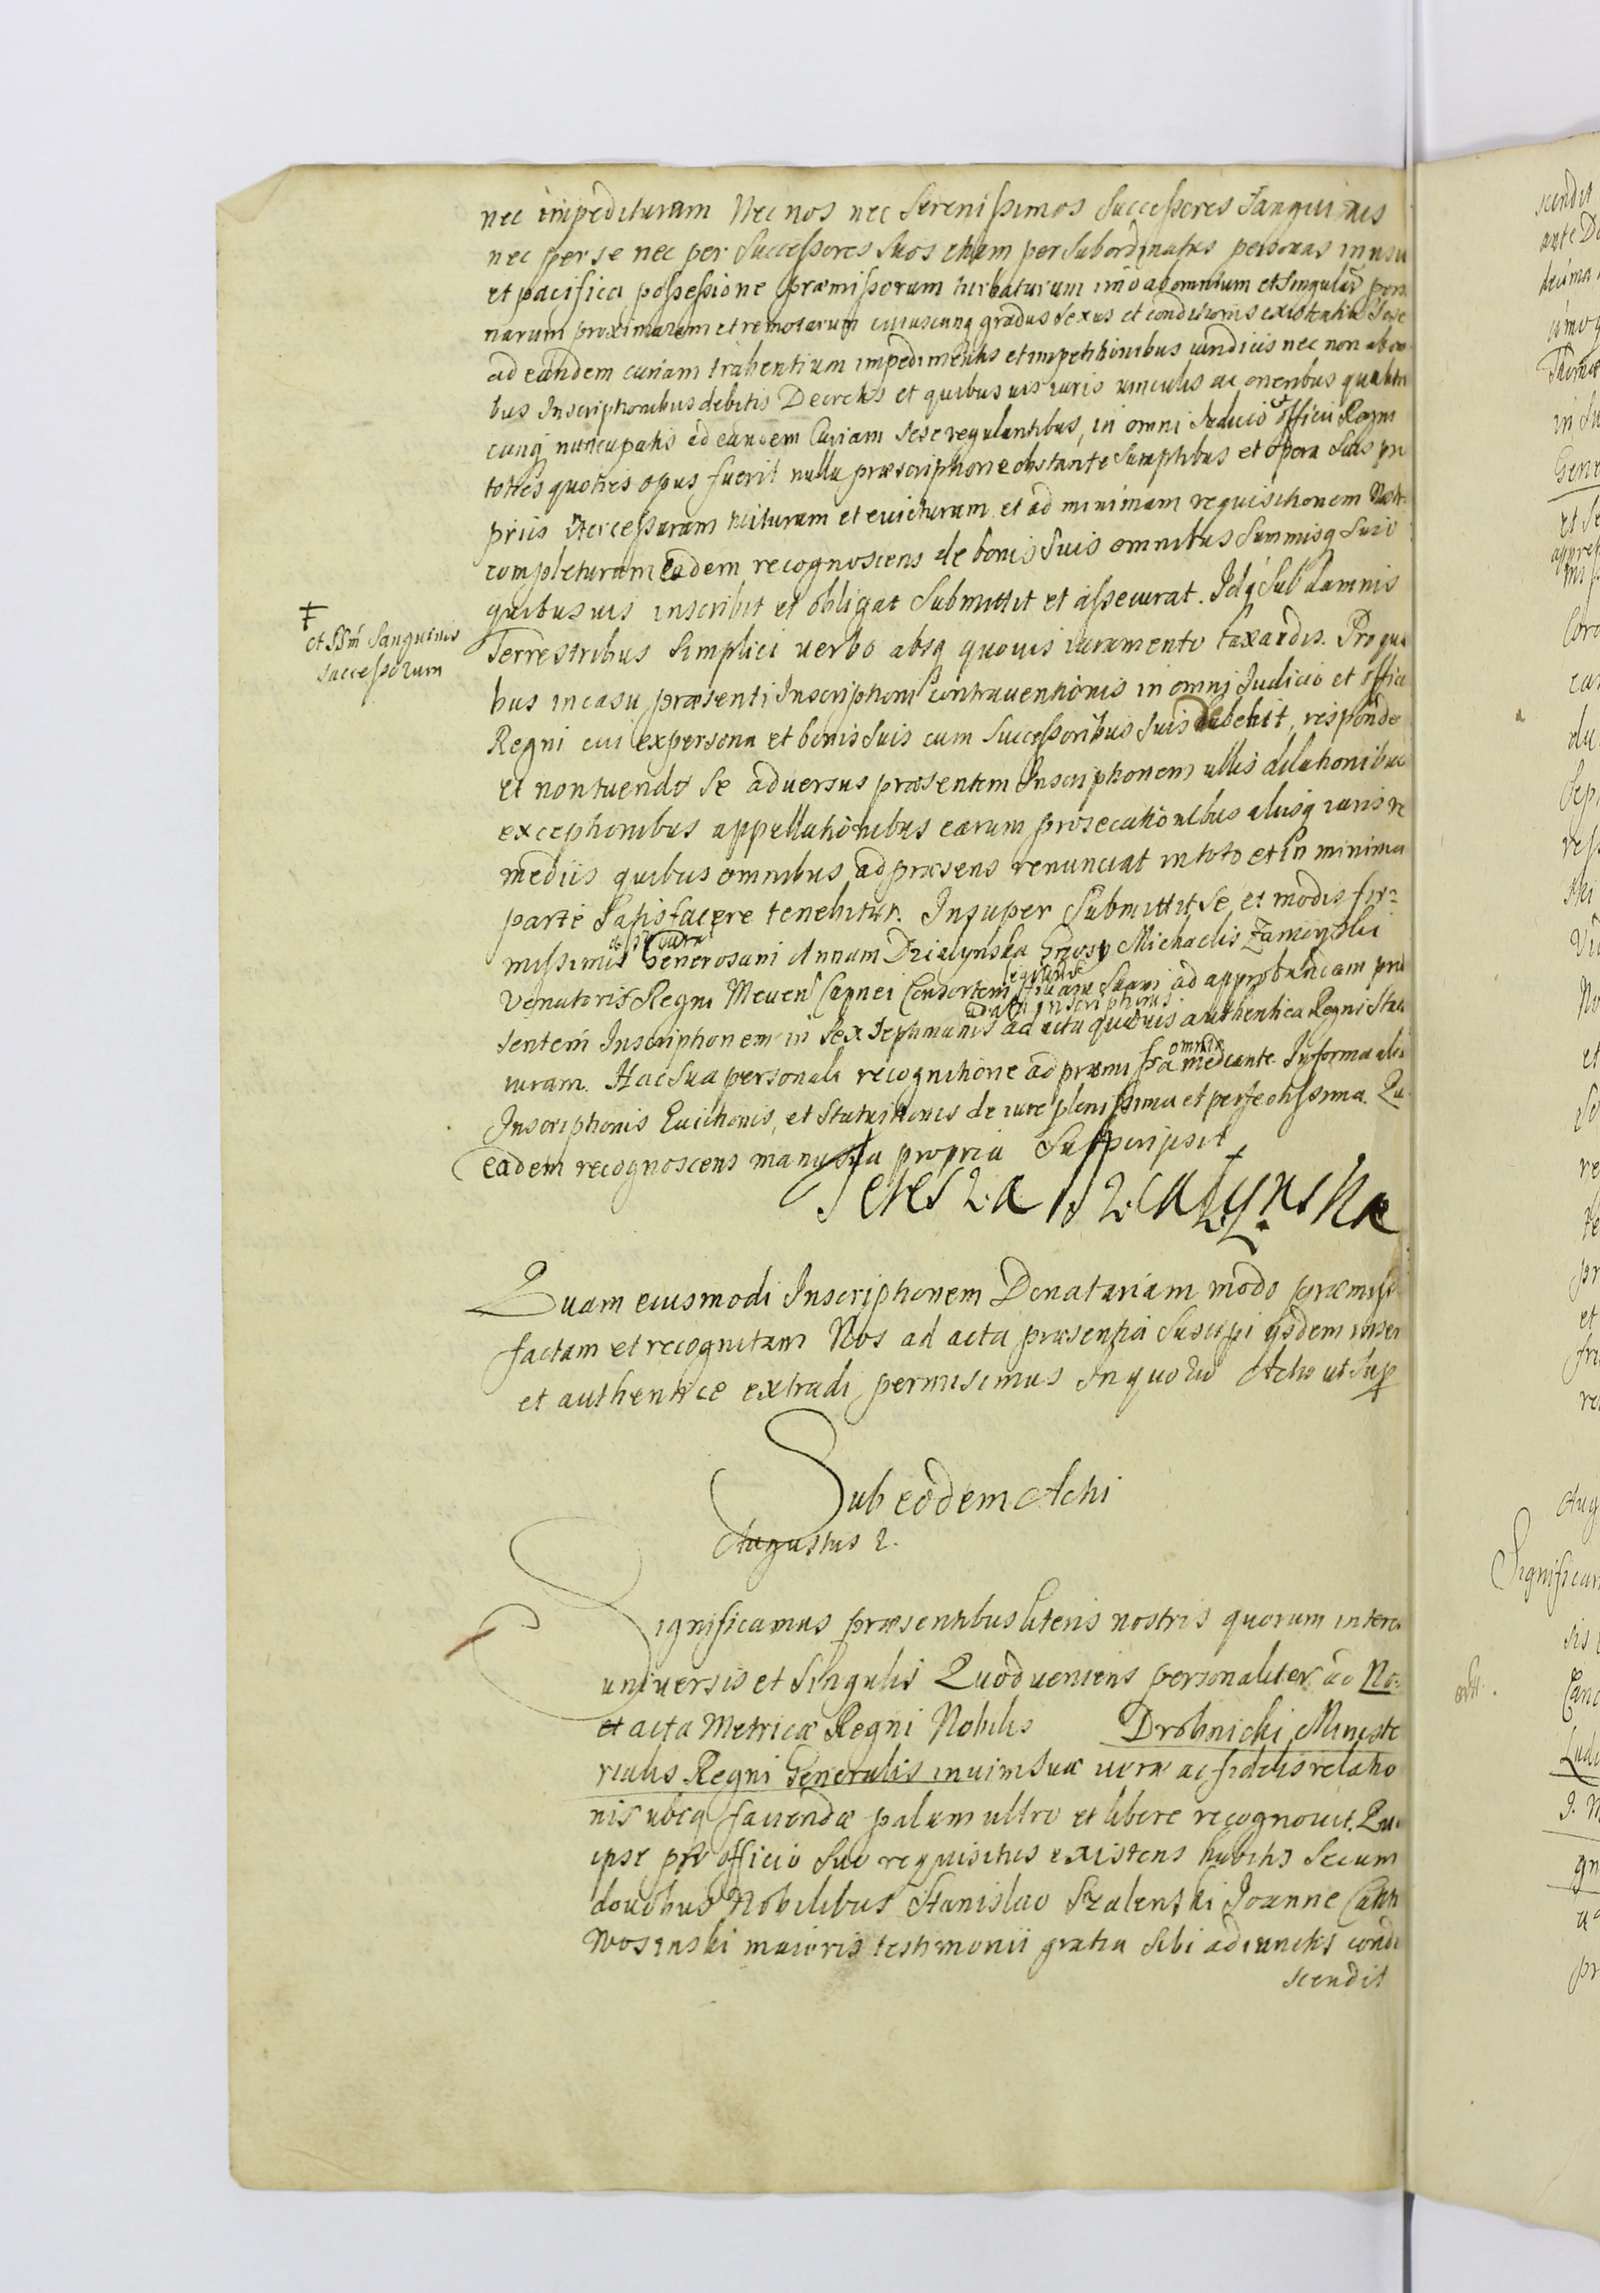 nec impedituram Nec nos nec Serenissimos Successores Sanguinis
nec per se nec per Successores Suos etiam per Subordinatas personas in usu
et pacifica possessione præmissorum turbaturum imo ab omnium et Singular perso
narum proximarum et remotarum cuiuscunq gradus Sexus et conditionis existentiu Sese
ad eandem curiam trahentium impedimentis et impetitionibus iuridicis nec non ab om
bus Inscriptionibus debitis Decretis et quibus uis iuris uinculis ac oneribus qualiter
cunq nuncupatis ad eandem Curiam Sese regulantibus, in omni Iudicio et officii Regni
toties quoties opus fuerit nulla præscriptione obstante Sumptibus et opera Suis pro
priis Intercessuram tuituram et euicturam et ad minimam requisitionem Nostr
completuram eadem recognoscens de bonis Suis omnibus Summisq Suis
quibusuis inscribit et obligat Submittit et assecurat. Idq Sub damnis
Terrestribus Simplici uerbo absq quouis iuramento taxandis. Pro qui
bus in casu præsenti Inscriptioni contrauentionis in omni Iudicio et offici
Regni cui ex persona et bonis Suis cum Successoribus Suis debebit, respondo
et non tuendo Se aduersus præsentem Inscriptionem ullis dilationibus
exceptionibus appellationibus earum prosecutionibus aliisq iuris re
mediis quibus omnibus ad præsens renunciat in toto et in minima
parte Satisfacere tenebitur. Insuper Submittit Se et modis fir=
missimis Generosam Annam Dzialynska Gnosi Michaelis Zamoyski
Venatoris Regni Meuen Capnei Consortem filiam Suam ad approbandam præ
ad acta inscriptionis
sentem Inscriptionem in Sex Septimanis ad acta quæuis authentica Regni Statu
omnia
iuram. Hac Sua personali recognitione ad præmissa mediante. In forma alias
Inscriptionis Euictionis, et Statuitionis de iure plenissima et perfectissima. Qu
eadem recognoscens manu sua propria Subscripsit
Teresza Dzialynska
‡
et SSm Sanguinis
Successorum
Quam eiusmodi Inscriptionem Donatariam modo præmisso
factam et recognitam Nos ad acta præsentia Suscipi ijsdem inser
et authentice extradi permisimus In quoru Actu ut Sup
Sub eodem Acti
Augustus 2.
Significamus præsentibus literis nostris quorum interest
uniuersis et Singulis Quod ueniens personaliter ad No:
et acta Metricæ Regni Nobilis Drobnicki Ministe
rialis Regni Generalis in uim Suæ ueræ ac fidelis relatio
nis ubiq faciendæ palam ultro et libere recognouit. Qui
ipse pro officio Suo requisitus existens habitis Secum
douobus Nobilibus Stanislao Szalenski Joanne
Wosinski maioris testimonii gratia Sibi adiunctis conde
scendit